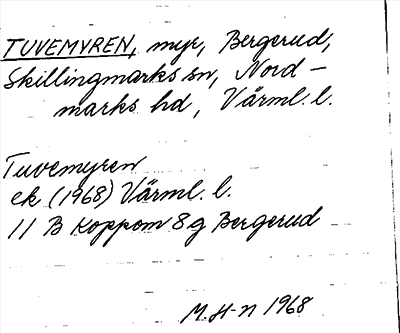 TUVEMYREN, myr, Bergerud,
Skillingmarks sn, Nord-
marks hd, Värml. l.
Tuvemyren
ek (1968) Värml. l.
11 B Koppom 8 g Bergerud
M. H-n 1968